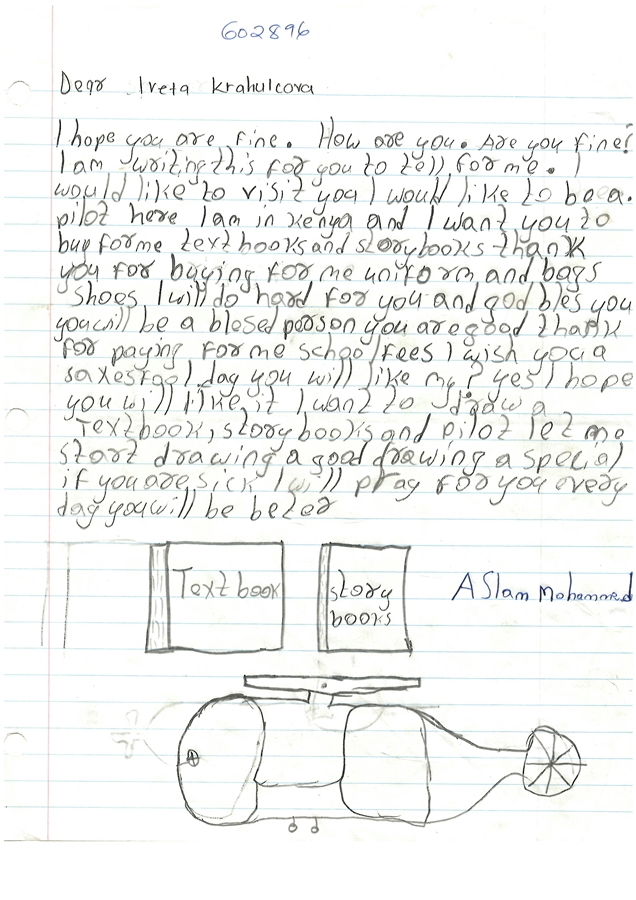 602896
Dear Iveta Krahulcova
I hope you are fine. How are you. Are you fine?
I am writing this for you to tell for me. I
would like to visit you I would like to be a.
pilot here I am in Kenya and I want you to
buy for me text books and story books thank
you for buying for me uniform and bags
shoes I will do hard for you and god bles you
you will be a blesed person you are good thank
for paying for me school fees I wish you a
saxesfool day you will like my? yes I hope
you will like it I want to draw a
Textbook, story books and pilot let me
start drawing a good drawing a special
if you are sick I will pray for you every
day you will be beter
Text book
story
books
ASlam Mohammed